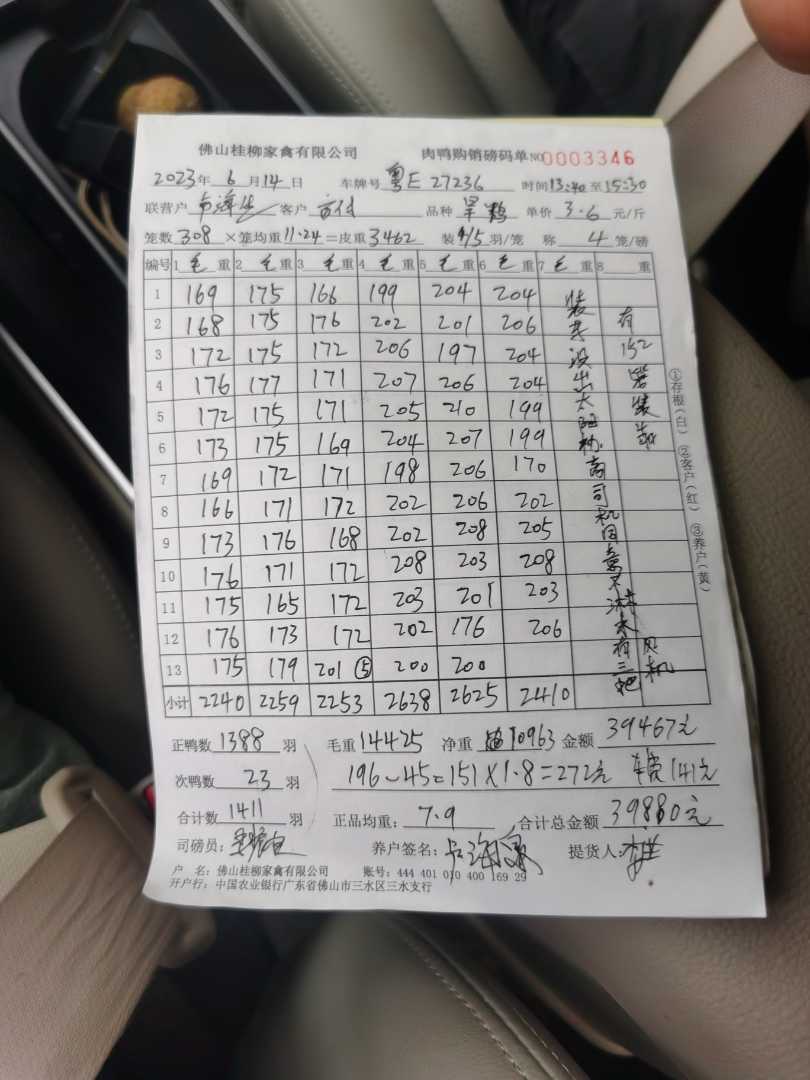 佛山桂柳家禽有限公司 肉鸭购销磅码单 NO 0003346
2023年 6月 14日 车牌号 粤E 27236 时间 13:40 至 15:30
联营户 客户 品种 单价 3.6 元/斤
笼数 308 ×笼均重 11.24 =皮重 3462 装 4/5 羽/笼 称 4 笼/磅
编号 1 毛 重 2 毛 重 3 毛 重 4 毛 重 5 毛 重 6 毛 重 7 毛 重 8 重
1 169 175 166 199 204 204
2 168 175 176 202 201 206
3 172 175 172 206 197 204
4 176 177 171 207 206 204
5 172 175 171 205 210 199
6 173 175 169 204 207 199
7 169 172 171 198 206 170
8 166 171 172 202 206 202
9 173 176 168 202 208 205
10 176 171 172 208 203 208
11 175 165 172 203 201 203
12 176 173 172 202 176 206
13 175 179 201 ⑤ 200 200
小计 2240 2259 2253 2638 2625 2410
有152
风机
①存根(白) ②客户(红) ③养户(黄)
正鸭数 1388 羽 毛重 14425 净重 10963 金额 39467元
次鸭数 23 羽 196-45=151×1.8=272元 车费141元
合计数 1411 羽 正品均重: 7.9 合计总金额 39880元
司磅员: 养户签名: 提货人:
户 名: 佛山桂柳家禽有限公司 账号: 444 401 010 400 169 29
开户行: 中国农业银行广东省佛山市三水区三水支行